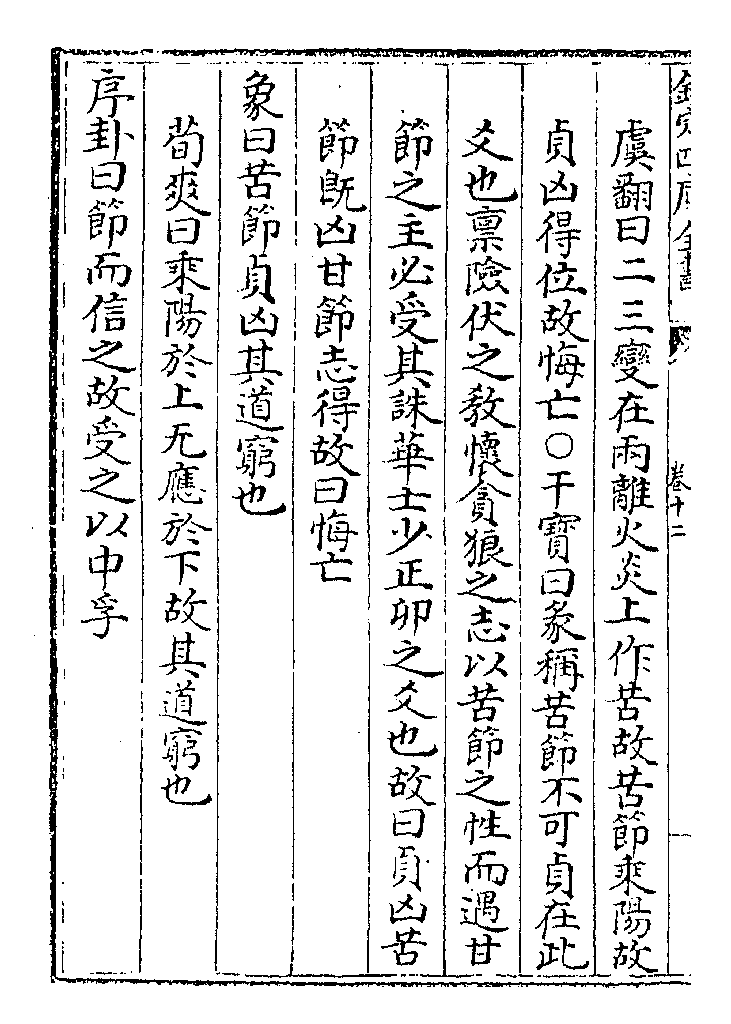 欽定四庫全書
卷十二
虞翻曰二三變在兩離火炎上作苦故苦節乘陽故
貞凶得位故悔亡○干寳曰彖稱苦節不可貞在此
爻也禀險伏之敎懷貪狼之志以苦節之性而遇甘
節之主必受其誅華士少正卯之爻也故曰貞凶苦
節旣凶甘節志得故曰悔亡
象曰苦節貞凶其道窮也
荀爽曰乘陽於上无應於下故其道窮也
序卦曰節而信之故受之以中孚